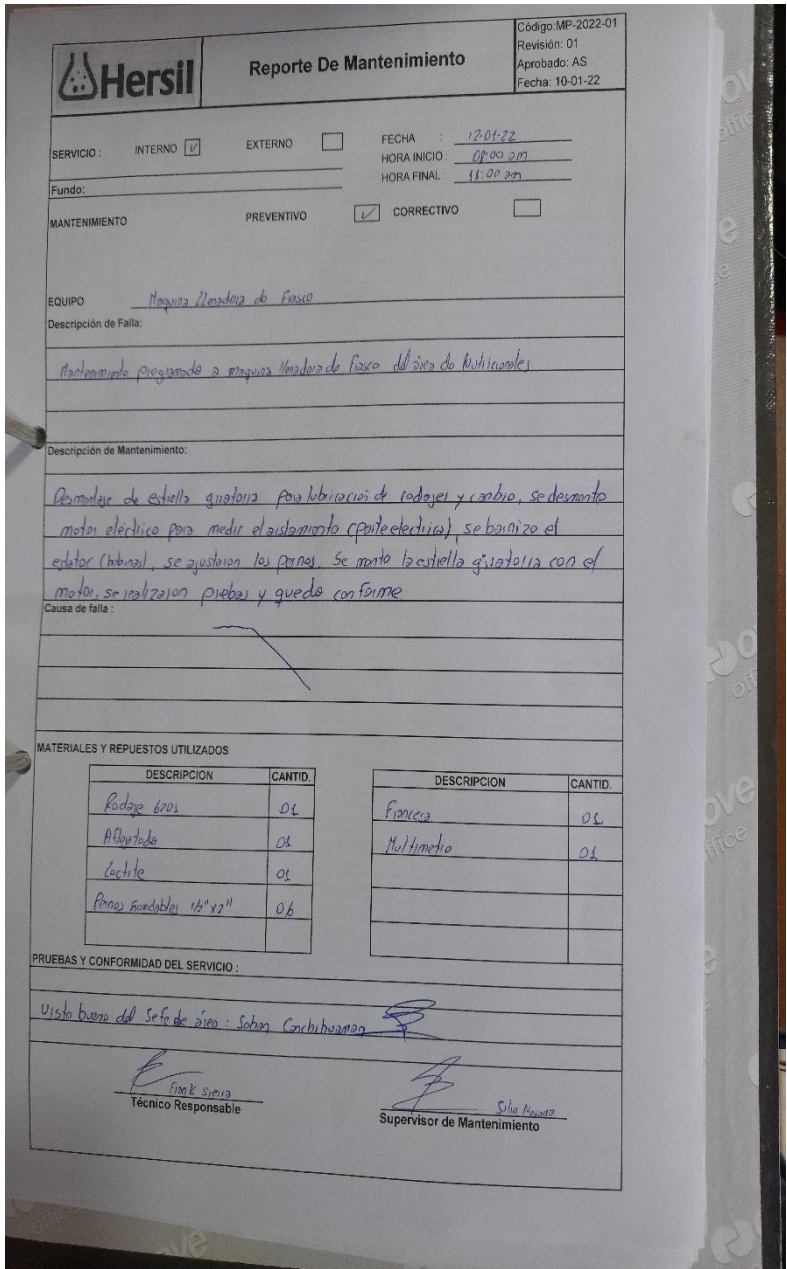 Hersil
Reporte De Mantenimiento
Código:MP-2022-01
Revisión: 01
Aprobado: AS
Fecha: 10-01-22
SERVICIO : INTERNO EXTERNO
FECHA : 12-01-22
HORA INICIO : 08:00 am
HORA FINAL : 11:00 am
Fundo:
MANTENIMIENTO PREVENTIVO CORRECTIVO
EQUIPO Maquina llenadora de Frasco
Descripción de Falla:
Mantenimiento programado a maquina llenadora de Frasco del área de Nutricionales
Descripción de Mantenimiento:
Desmontaje de estrella giratoria para lubricación de rodajes y cambio, se desmonto
motor eléctrico para medir el aislamiento (parte electrica), se barnizo el
estator (bobinas), se ajustaron los pernos. Se monto la estrella giratoria con el
motor, se realizaron pruebas y quedo conforme
Causa de falla :
MATERIALES Y REPUESTOS UTILIZADOS
DESCRIPCION CANTID. DESCRIPCION CANTID.
Rodaje 6201 01 Francesa 01
Aflojatodo 01 Multimetro 01
Loctite 01
Pernos 1/2" x 2" 06
PRUEBAS Y CONFORMIDAD DEL SERVICIO :
Visto bueno del Jefe de área :
Frank Sierra
Técnico Responsable
Julio
Supervisor de Mantenimiento
ove
office